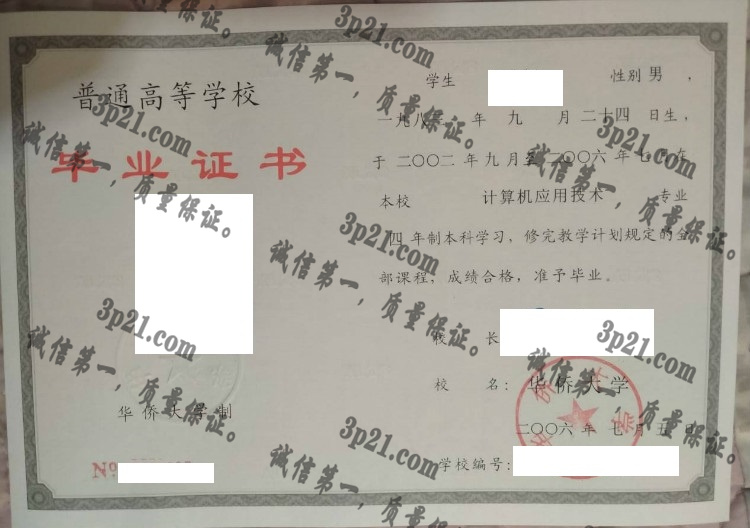 普通高等学校
毕业证书
华侨大学制
No
学生 性别 男 ，
一九八 年 九 月 二十四 日生，
于 二〇〇二 年 九 月至 二〇〇六 年 七 月在
本校 计算机应用技术 专业
四 年制本科学习，修完教学计划规定的全
部课程，成绩合格，准予毕业。
校 长
校 名：华侨大学
二〇〇六 年 七 月 五 日
学校编号：
3p21.com
诚信第一，质量保证。
3p21.com
诚信第一，质量保证。
3p21.com
诚信第一，质量保证。
3p21.com
诚信第一，质量保证。
3p21.com
诚信第一，质量保证。
3p21.com
诚信第一，质量保证。
3p21.com
诚信第一，质量保证。